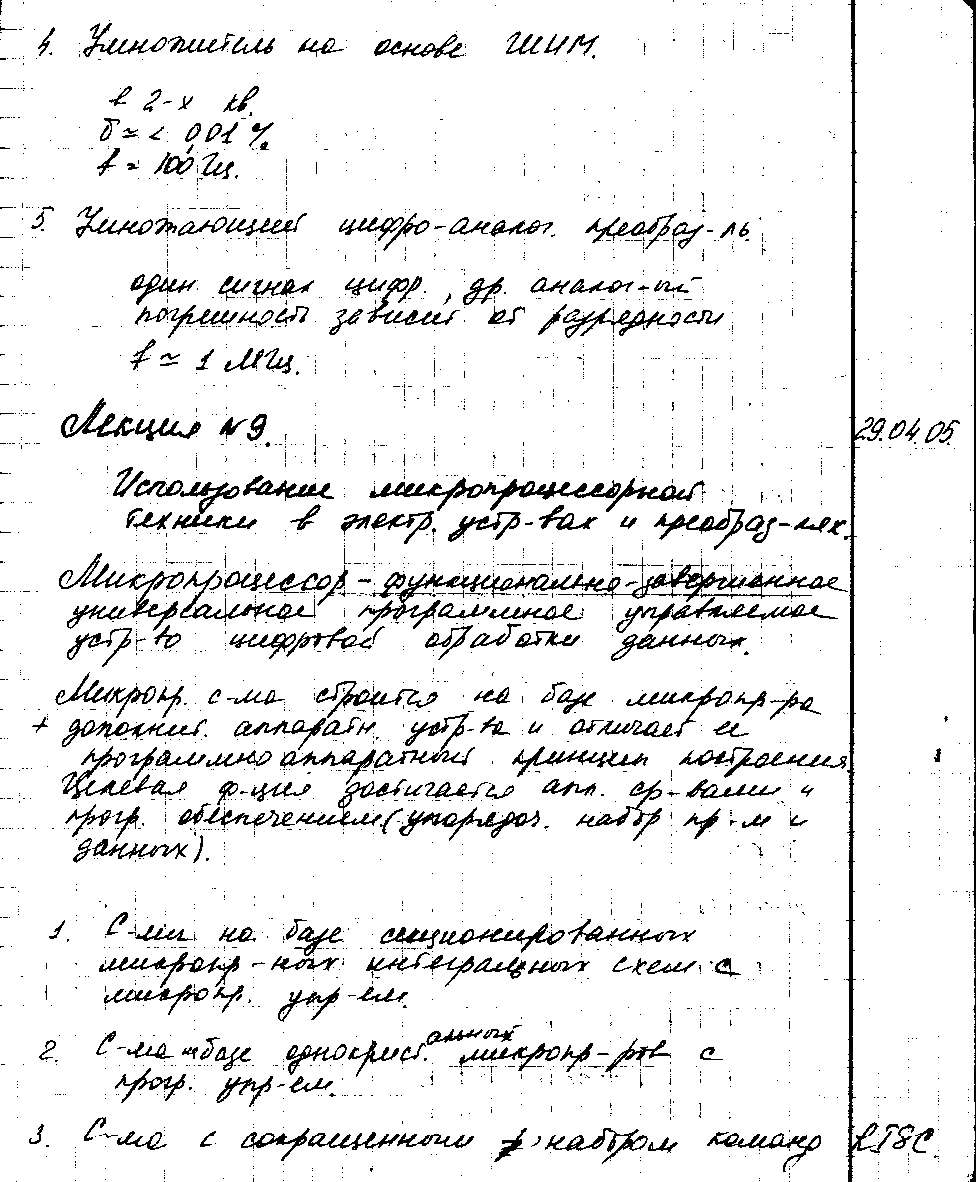 4. Умножитель на основе ШИМ.
в 2-х кв.
б ≃ < 0,01 %.
f ≃ 100 Гц.
5. Умножающий цифро-аналог. преобраз-ль.
один сигнал цифр., др. аналог-ый
погрешность зависит от разрядности
f ≃ 1 МГц.
Лекция №9. 29.04.05.
Использование микропроцессорной
техники в электр. устр-вах и преобраз-лях.
Микропроцессор - функционально-завершенное
универсальное программное управляемое
устр-во цифровой обработки данных.
Микропр. с-ма строится на базе микропр-ра
+ дополнит. аппаратн. устр-ва и отличает ее
программноаппаратный принцип построения.
Целевая ф-ция достигается апп. ср-вами и
прогр. обеспечением (упорядоч. набор пр-м и
данных).
1. С-мы на базе секционированных
микропр-ных интегральных схем с
микропр. упр-ем.
2. С-ма на базе однокрист.альных микропр-ров с
прогр. упр-ем.
3. С-ма с сокращенным набором команд RISC.